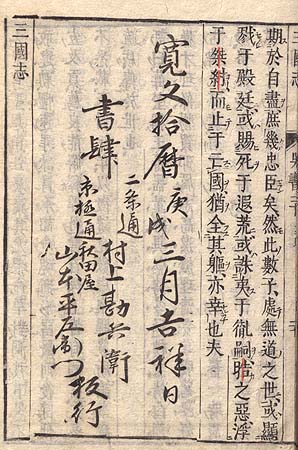 期於自盡庶幾忠臣矣然此數子處無道之世或顯
戮于殿廷或賜死于遐荒或誅夷于胤嗣晧之惡浮
于桀紂而止于亡國猶全其軀亦幸也夫
寛文拾曆庚戌三月吉祥日
書肆
二条通
村上勘兵衛
京極通秋田屋
山本平左衛門板行
三國志